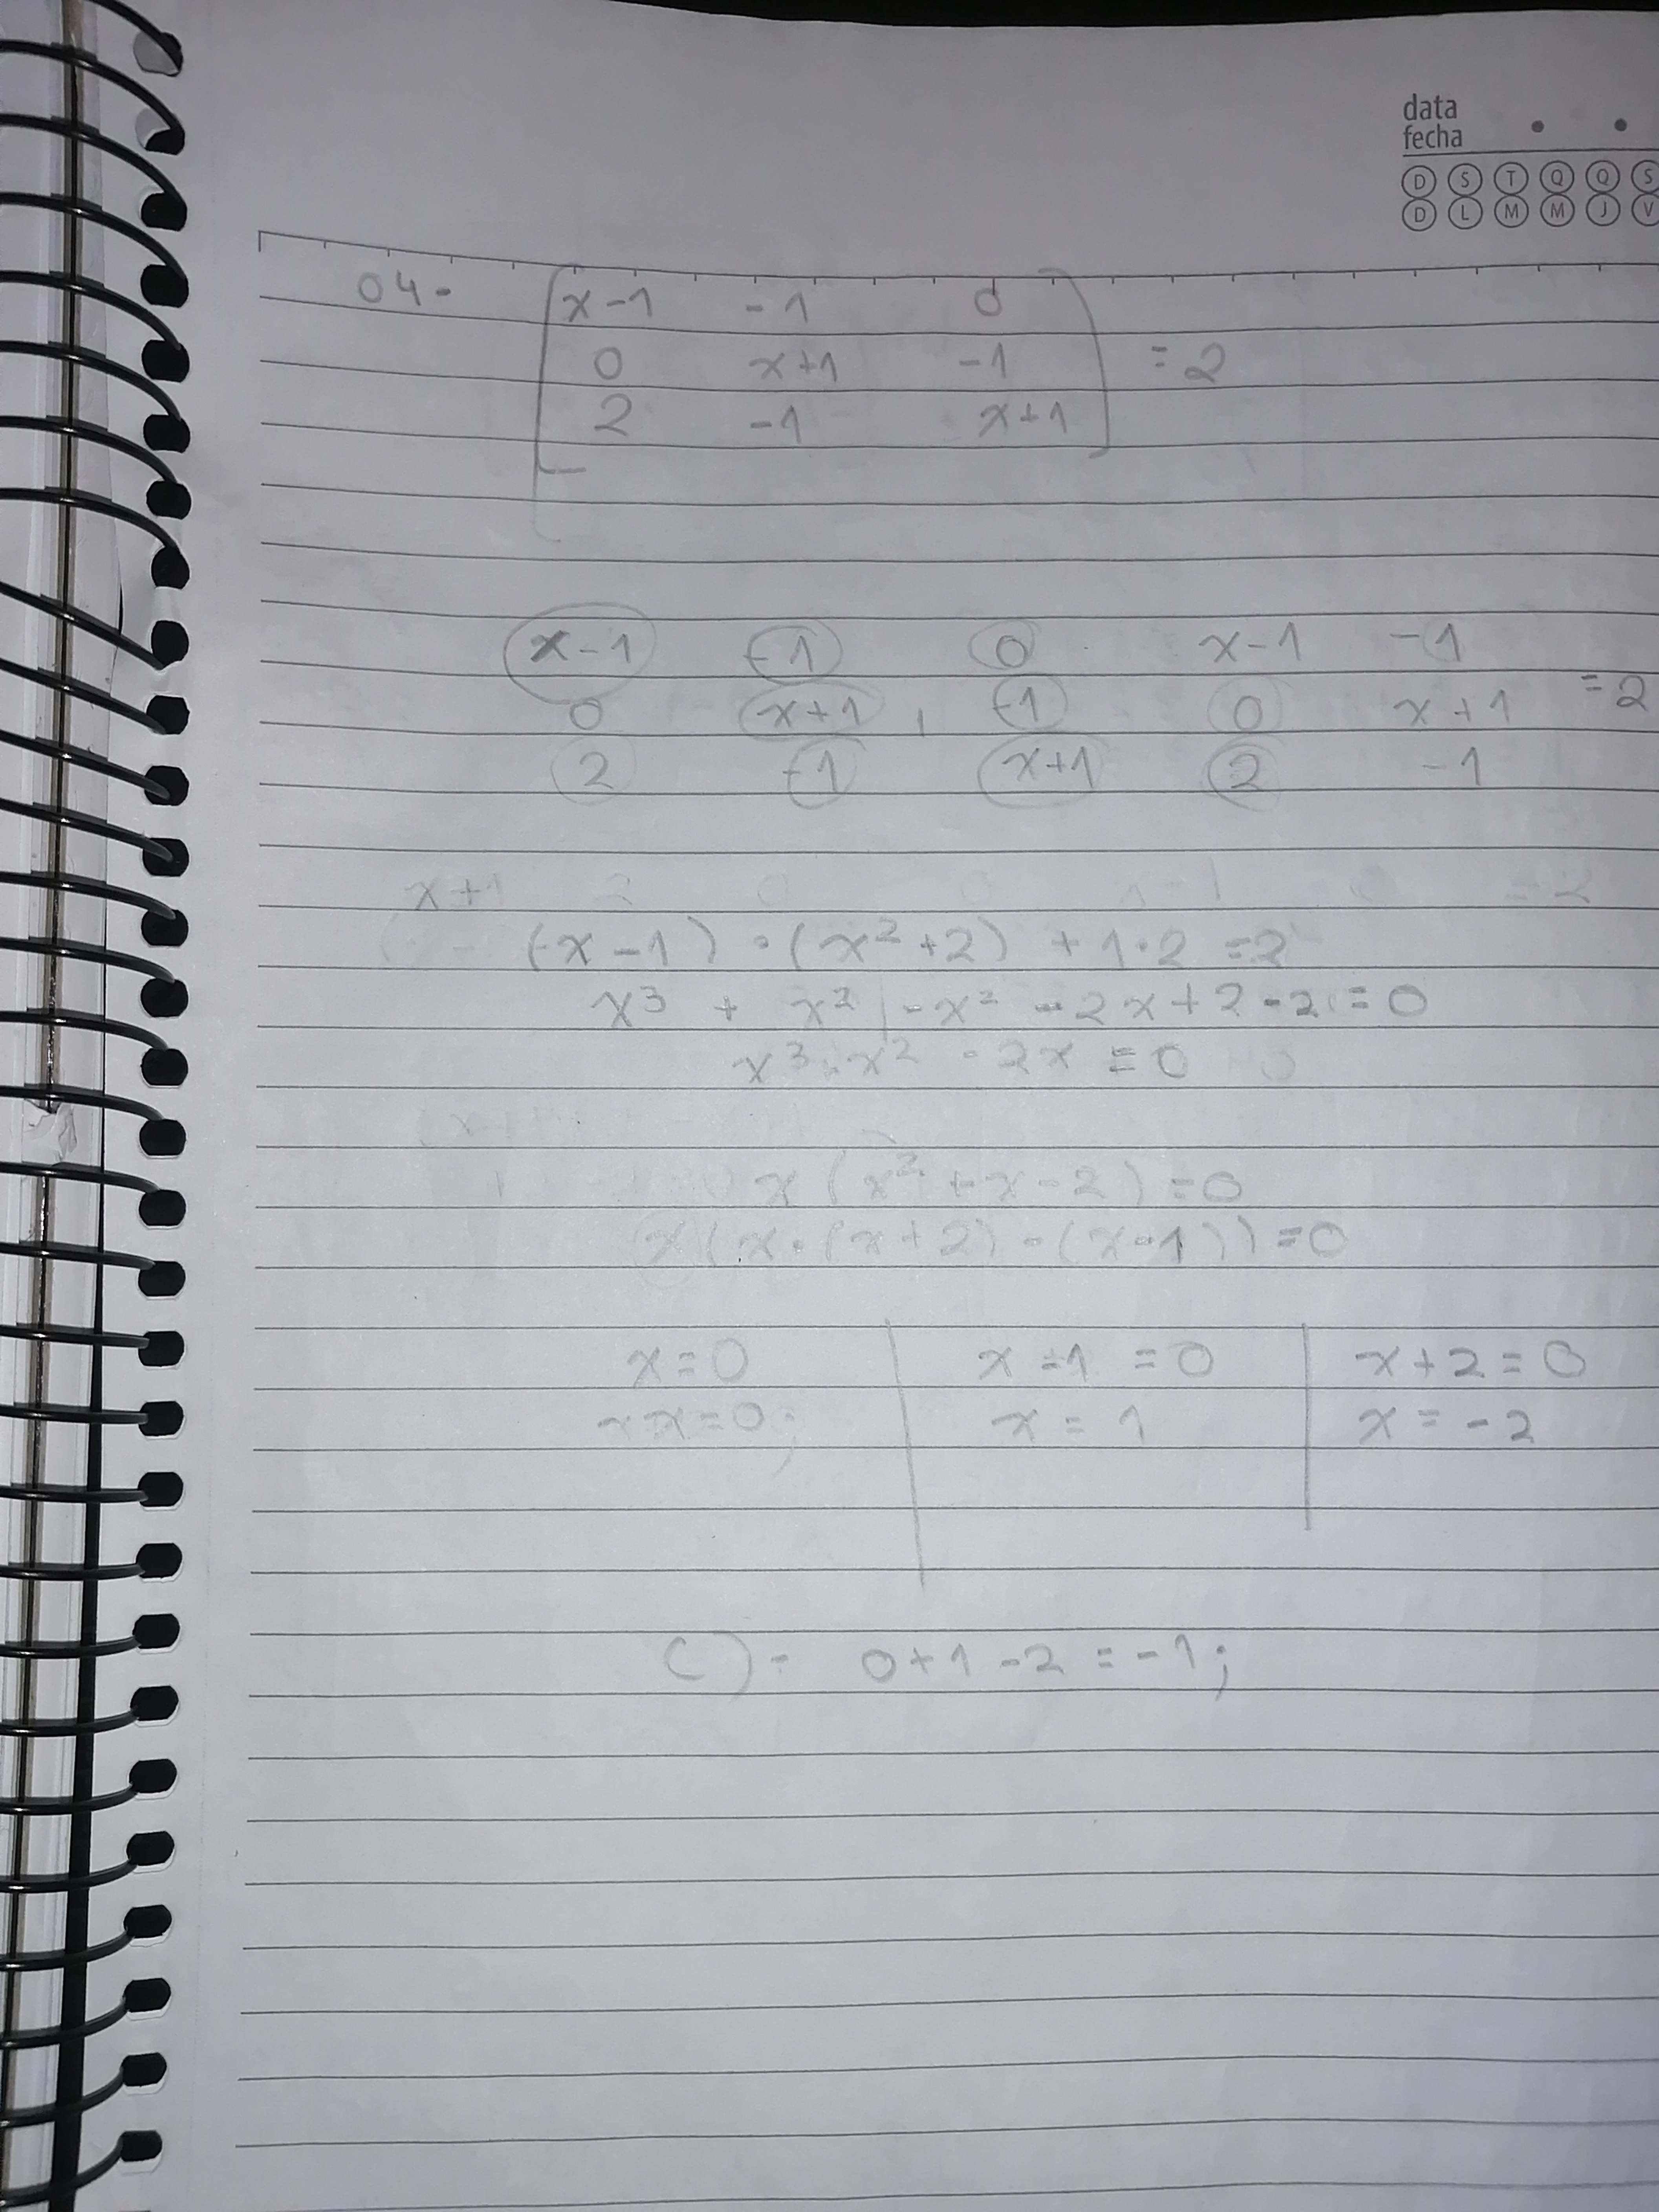 data
fecha
D S T Q Q S
D L M M J V
04- x-1 -1 0
0 x+1 -1 = 2
2 -1 x+1
x-1 -1 0 x-1 -1
0 x+1 -1 0 x+1 = 2
2 -1 x+1 2 -1
(x-1) · (x²+2) + 1·2 = 2
x³ + x² - x² - 2x + 2 - 2 = 0
x³ x² - 2x = 0
x (x² + x - 2) = 0
x (x · (x+2) - (x-1)) = 0
x = 0 x - 1 = 0 x + 2 = 0
x = 0; x = 1 x = -2
C) = 0 + 1 - 2 = -1;